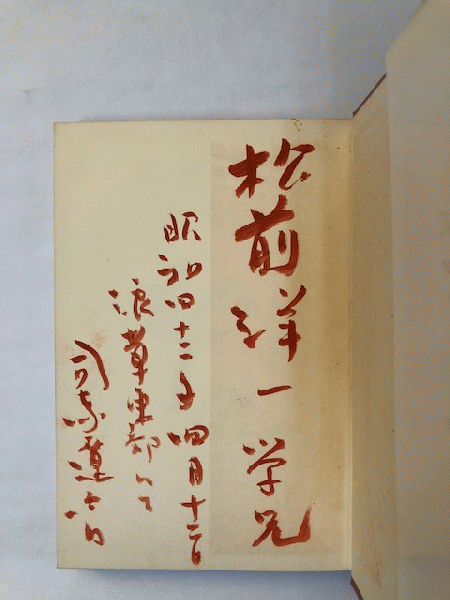 松前洋一学兄
昭和四十二年四月十二日
浪華東部にて
司馬遼太郎